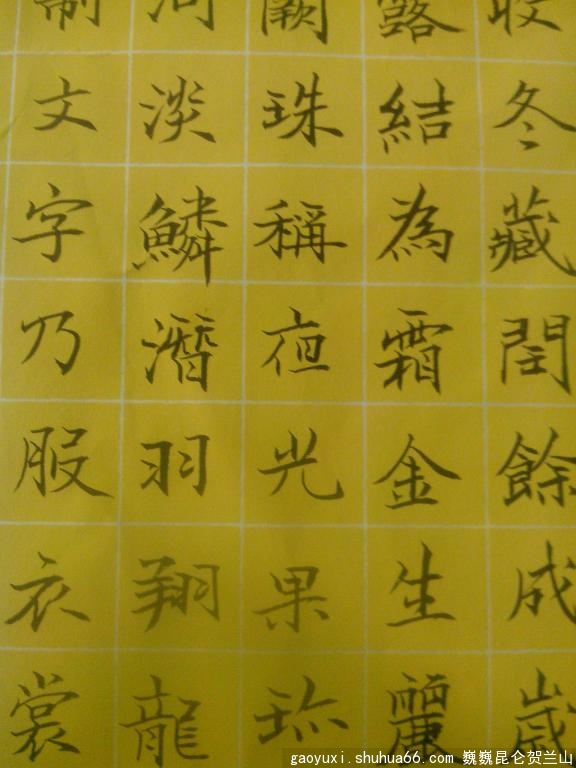 收冬藏閏餘成歲
露結為霜金生麗
闕珠稱亱光果珎
河淡鱗潛羽翔龍
制文字乃服衣裳
gaoyuxi.shuhua66.com 巍巍昆仑贺兰山